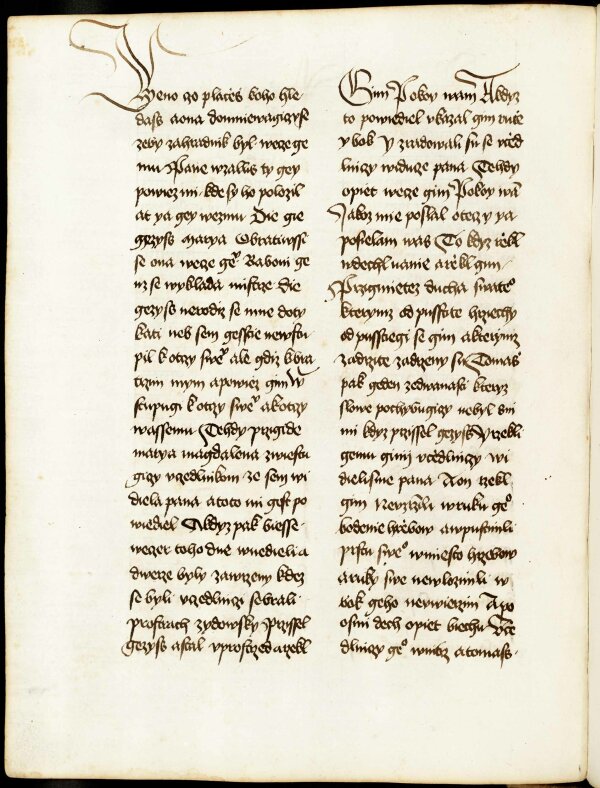 Zeno czo places koho hle
dass aona domniewagiczyse
zeby zahradnik byl wecze ge
mu Pane wzalliss ty gey
powiez mi kde sy ho polozil
at ya gey wezmu Die gie
gezyss marya Obratiwssi
se ona wecze geͦ Raboni ge
nz se wyklada mistrze die
gezyss nerodiz se mne doty
kati neb sem gesstie newstu
pil k otczy sweͦ ale gdiz k bra
trzim mym apowiez gim W
stupugi k otczy sweͦ ak otczy
wassemu Tehdy przigide
marya magdalena zwiestu
giczy vczedlnikom ze sem wi
diela pana atoto mi gest po
wiediel Akdyz pak biesse
weczer toho dne wnedieli a
dwerze byly zawrzeny kdez
se byli vczedlniczi sebrali
prostrach zydowsky Przissel
gezyss astal vprostrzed arzekl
Gim Pokoy wam Akdyz
to powiediel vkazal gim rucze
y bok Y zradowali su se vczed
lniczy widucze pana Tehdy
opiet wecze gim Pokoy wā
Jakoz mie poslal otecz y ya
posielam was To kdyz rzekl
wdechl nanie arzekl gim
Przigmietez ducha swateͦ
kterymz od pustite hrziechy
od pusstiegi se gim akterymz
zadrzite zadrzeny su Tomas
pak geden zedwanasti kteryz
slowe pochybugiczy nebyl sni
mi kdyz przissel gezyss Y rzekli
gemu gini vczedlniczy wi
dielisme pana A on rzekl
gim Nevzrzimli wruku geͦ
bodenie hrzebow awpustimli
prstu sweͦ wmiesto hrzebow
aruky swe newlozimli w
bok geho neuwierzim A po
osmi dech opiet biechu Vcze
dlniczy geͦ wnitrz atomass